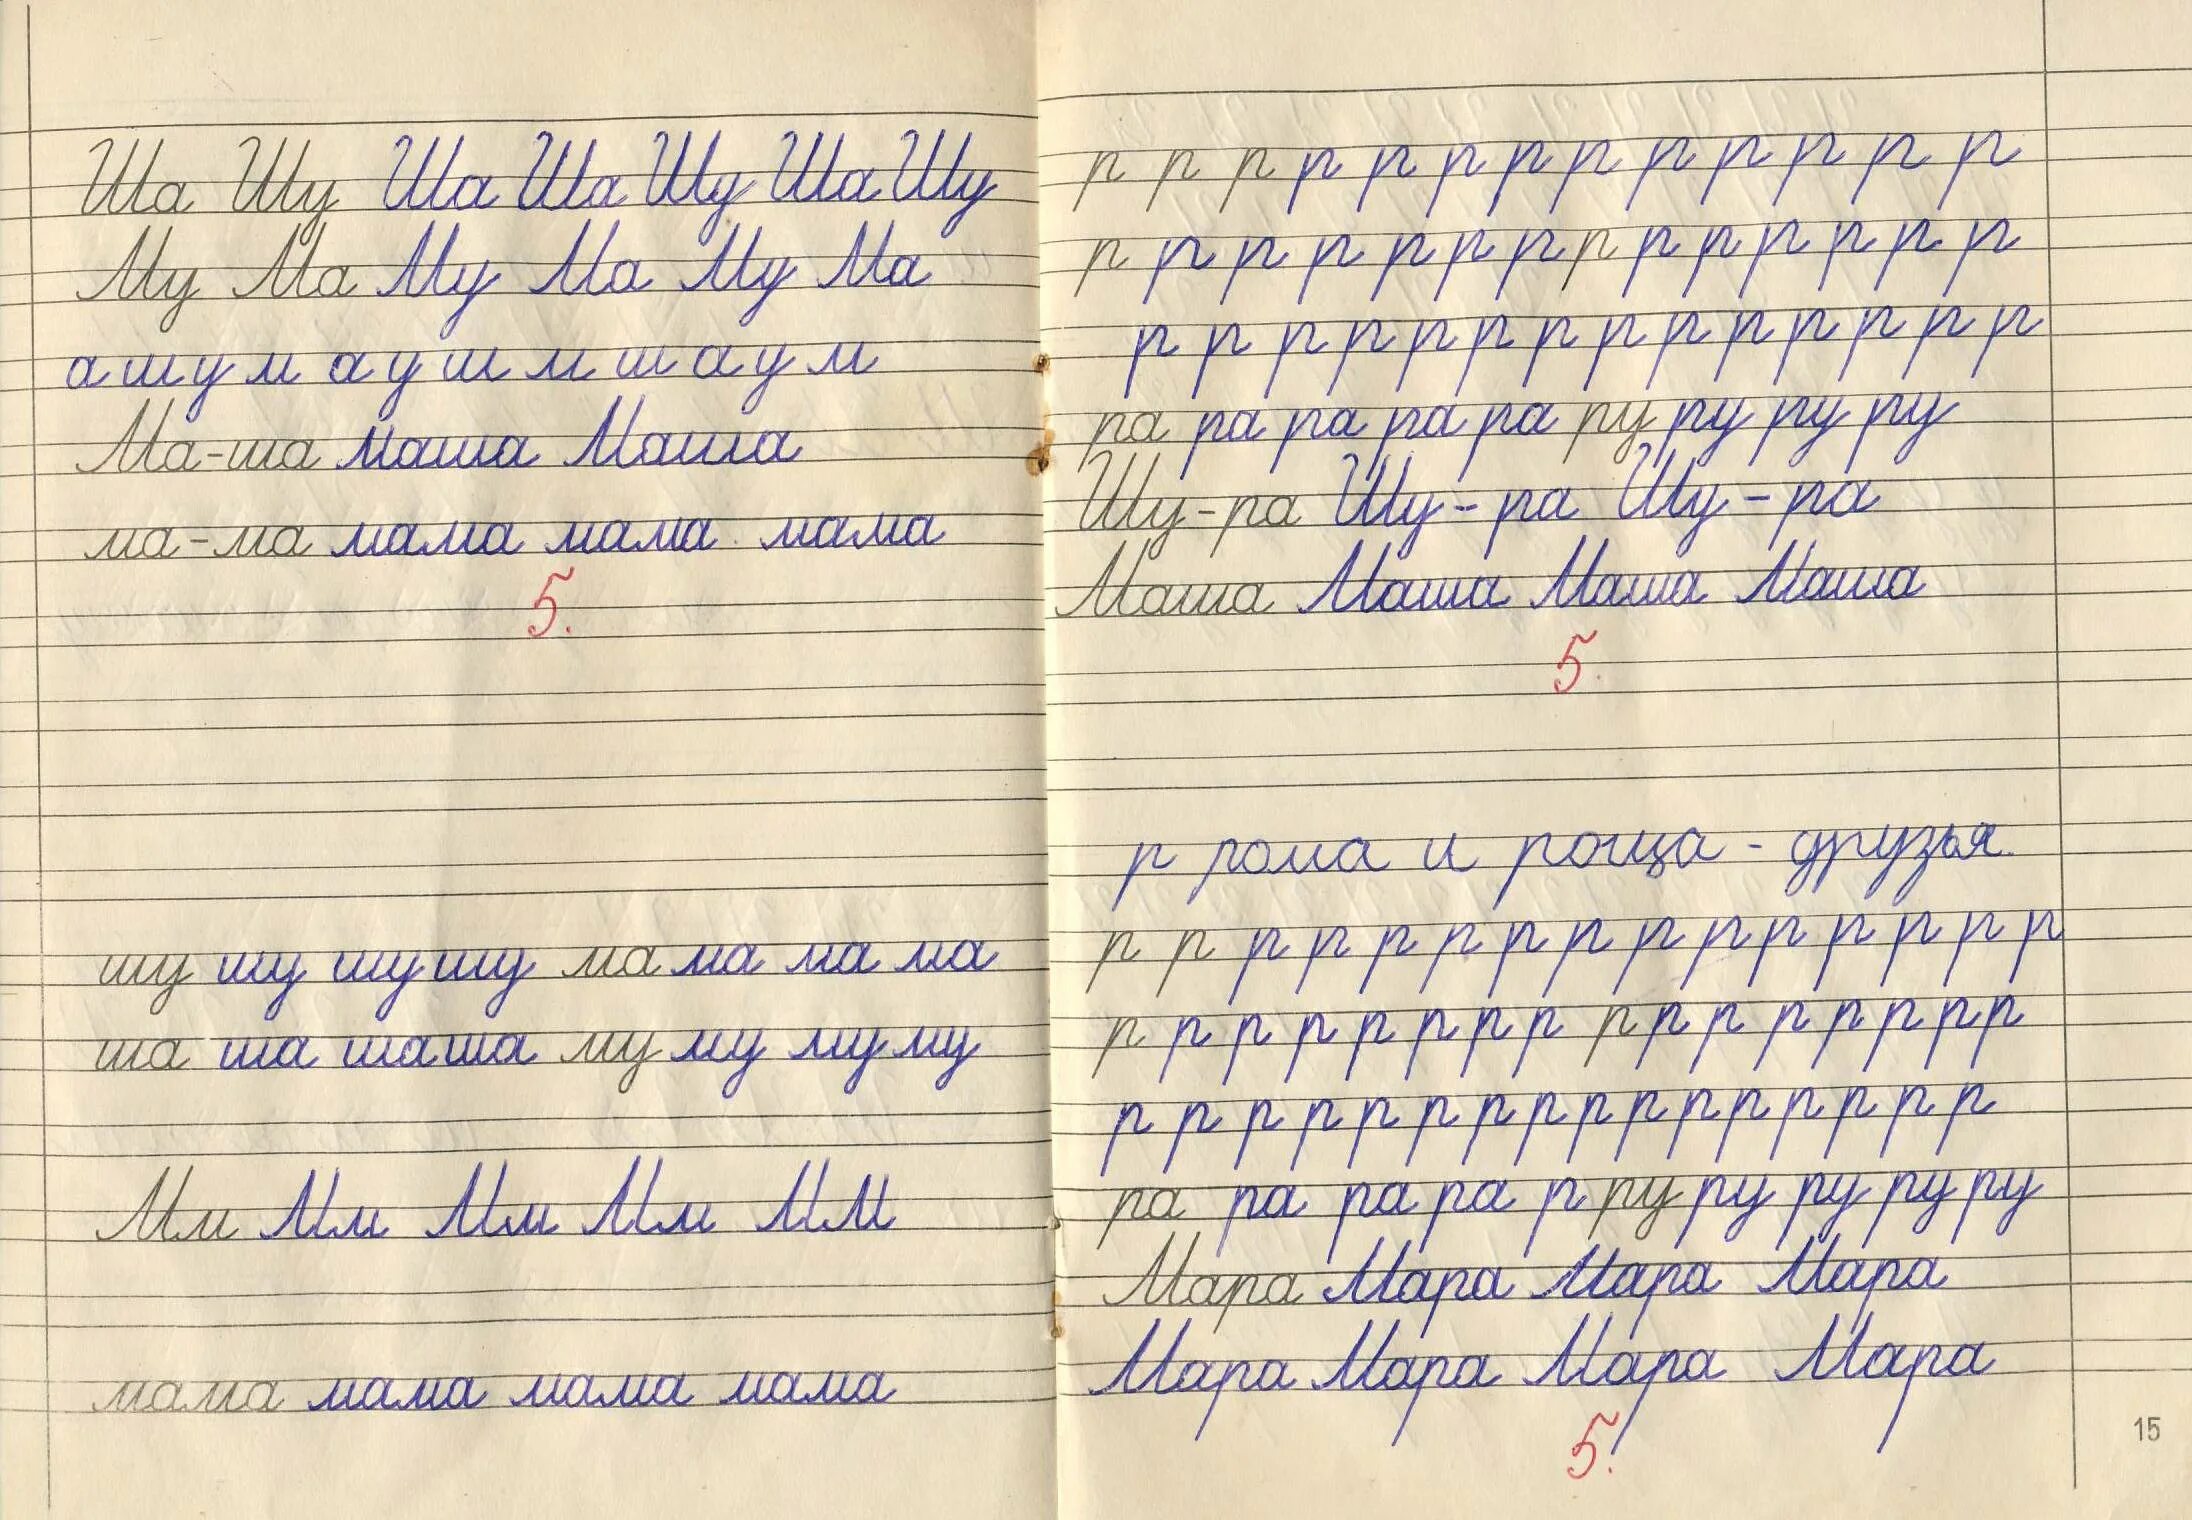 Ша Шу Ша Ша Шу Ша Шу
Му Ма Му Ма Му Ма
а ш у м а у ш м ш а у м
Ма-ша маша Маша
ма-ма мама мама мама
5.
шу шу шу шу ма ма ма ма
ша ша ша ша му му му му
Мм Мм Мм Мм ММ
мама мама мама мама
р р р р р р р р р р р р р
р р р р р р р р р р р р р р
р р р р р р р р р р р р р р
ра ра ра ра ра ру ру ру ру
Шу-ра Шу - ра Шу - ра
Маша Маша Маша Маша
5.
р рома и роща - друзья.
р р р р р р р р р р р р р р р
р р р р р р р р р р р р р р р р
р р р р р р р р р р р р р р р р
ра ра ра ра р ру ру ру ру ру
Мара Мара Мара Мара
Мара Мара Мара Мара
5.
15